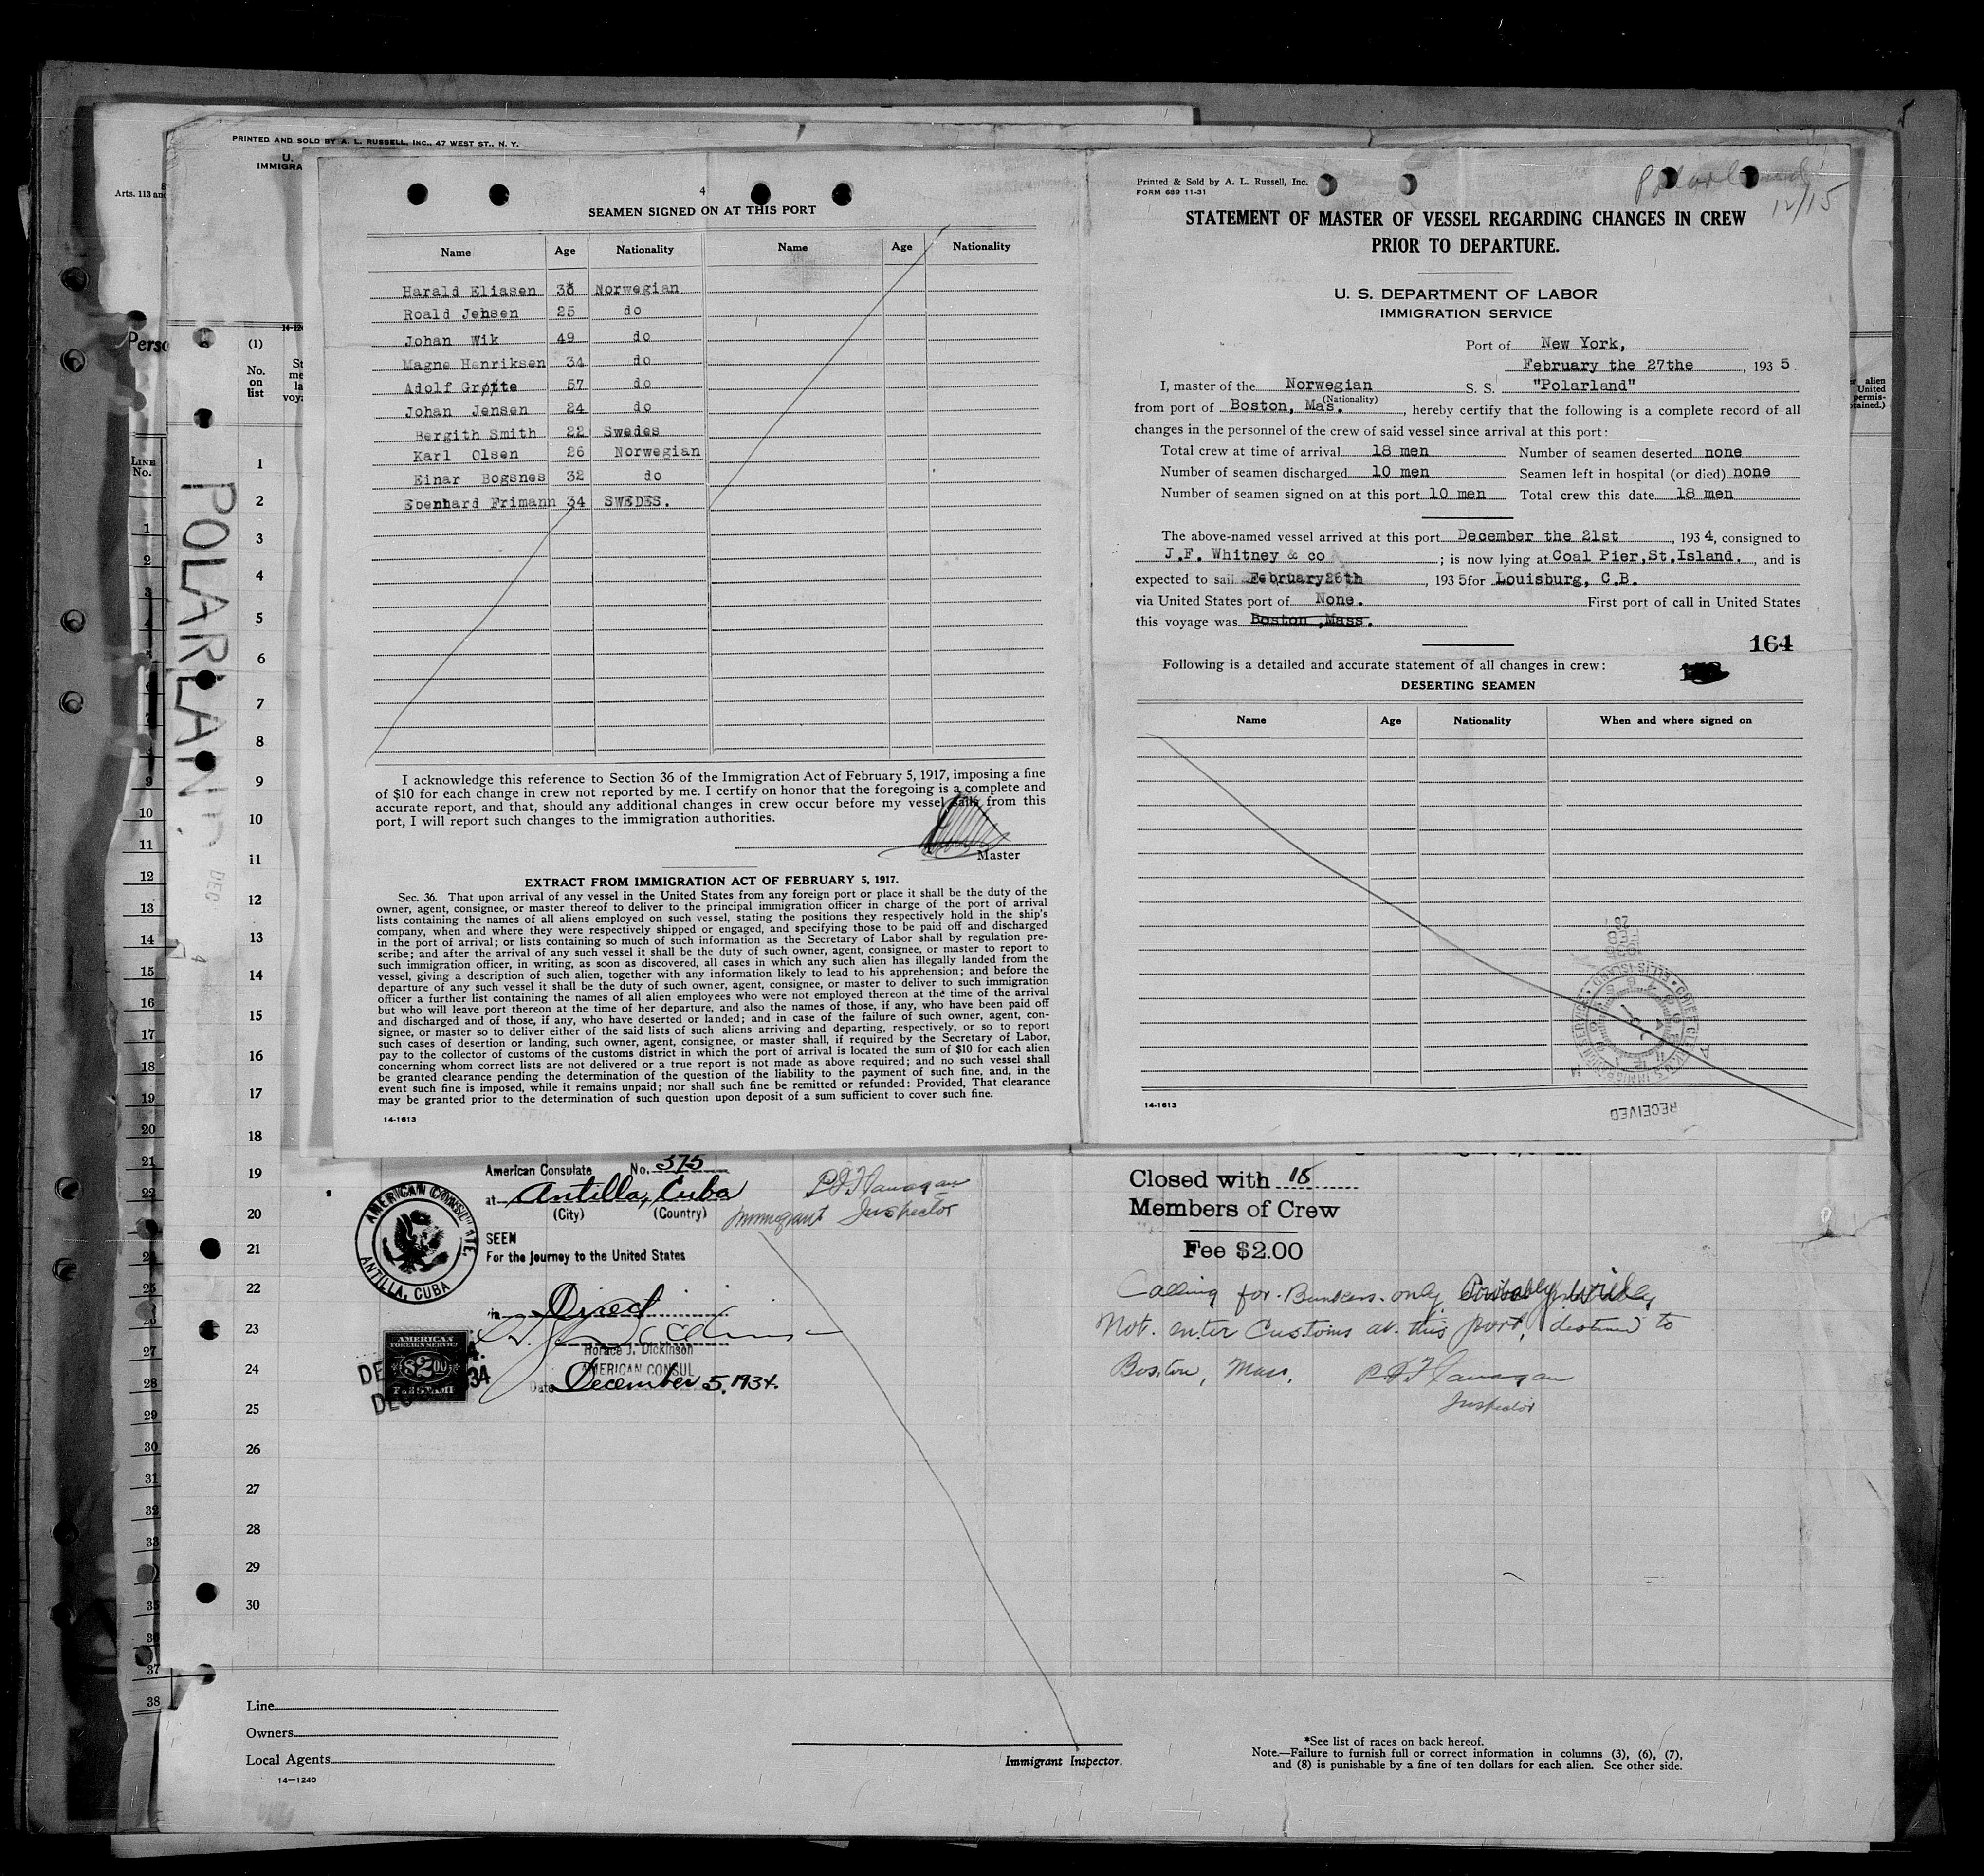 PRINTED AND SOLD BY A. L. RUSSELL, INC., 47 WEST ST., N. Y.
U.
IMMIGRA
Arts. 113 and
4
SEAMEN SIGNED ON AT THIS PORT
Name Age Nationality Name Age Nationality
Harald Eliasen 38 Norwegian
Roald Jensen 25 do
Johan Wik 49 do
Magne Henriksen 34 do
Adolf Grøtte 57 do
Johan Jensen 24 do
Bergith Smith 22 Swedes
Karl Olsen 26 Norwegian
Einar Bogsnes 32 do
Ebenhard Frimann 34 SWEDES.
I acknowledge this reference to Section 36 of the Immigration Act of February 5, 1917, imposing a fine
of $10 for each change in crew not reported by me. I certify on honor that the foregoing is a complete and
accurate report, and that, should any additional changes in crew occur before my vessel sails from this
port, I will report such changes to the immigration authorities.
Master
EXTRACT FROM IMMIGRATION ACT OF FEBRUARY 5, 1917.
Sec. 36. That upon arrival of any vessel in the United States from any foreign port or place it shall be the duty of the
owner, agent, consignee, or master thereof to deliver to the principal immigration officer in charge of the port of arrival
lists containing the names of all aliens employed on such vessel, stating the positions they respectively hold in the ship's
company, when and where they were respectively shipped or engaged, and specifying those to be paid off and discharged
in the port of arrival; or lists containing so much of such information as the Secretary of Labor shall by regulation pre-
scribe; and after the arrival of any such vessel it shall be the duty of such owner, agent, consignee, or master to report to
such immigration officer, in writing, as soon as discovered, all cases in which any such alien has illegally landed from the
vessel, giving a description of such alien, together with any information likely to lead to his apprehension; and before the
departure of any such vessel it shall be the duty of such owner, agent, consignee, or master to deliver to such immigration
officer a further list containing the names of all alien employees who were not employed thereon at the time of the arrival
but who will leave port thereon at the time of her departure, and also the names of those, if any, who have been paid off
and discharged and of those, if any, who have deserted or landed; and in case of the failure of such owner, agent, con-
signee, or master so to deliver either of the said lists of such aliens arriving and departing, respectively, or so to report
such cases of desertion or landing, such owner, agent, consignee, or master shall, if required by the Secretary of Labor,
pay to the collector of customs of the customs district in which the port of arrival is located the sum of $10 for each alien
concerning whom correct lists are not delivered or a true report is not made as above required; and no such vessel shall
be granted clearance pending the determination of the question of the liability to the payment of such fine, and, in the
event such fine is imposed, while it remains unpaid; nor shall such fine be remitted or refunded: Provided, That clearance
may be granted prior to the determination of such question upon deposit of a sum sufficient to cover such fine.
14-1613
Printed & Sold by A. L. Russell, Inc.
FORM 689 11-31
Polarland
12/15
STATEMENT OF MASTER OF VESSEL REGARDING CHANGES IN CREW
PRIOR TO DEPARTURE.
U. S. DEPARTMENT OF LABOR
IMMIGRATION SERVICE
Port of New York,
February the 27the, 1935
I, master of the Norwegian S. S. "Polarland"
(Nationality)
from port of Boston, Mas., hereby certify that the following is a complete record of all
changes in the personnel of the crew of said vessel since arrival at this port:
Total crew at time of arrival 18 men Number of seamen deserted none
Number of seamen discharged 10 men Seamen left in hospital (or died) none
Number of seamen signed on at this port 10 men Total crew this date 18 men
The above-named vessel arrived at this port December the 21st, 1934, consigned to
J.F. Whitney & co; is now lying at Coal Pier, St.Island., and is
expected to sail February26th, 1935 for Louisburg, C.B.
via United States port of None. First port of call in United States
this voyage was Boston ,Mass.
164
Following is a detailed and accurate statement of all changes in crew:
DESERTING SEAMEN
Name Age Nationality When and where signed on
RECEIVED
14-1613
POLARLAND
DEC
4
Perso
LINE
No.
14-124
(1)
No.
on
list
St
me
la
voya
r alien
United
permis-
btained.)
1
2
3
4
5
6
7
8
9
10
11
12
13
14
15
16
17
18
19
20
21
22
23
24
25
26
27
28
29
30
American Consulate No. 375
at Antilla, Cuba
(City) (Country)
SEEN
For the journey to the United States
via Direct
Horace J. Dickinson
AMERICAN CONSUL
Date December 5, 1934.
AMERICAN CONSULATE, ANTILLA, CUBA
AMERICAN
FOREIGN SERVICE
$2.00
FEE STAMP
P J Flanagan
Immigrant Inspector
Closed with 18
Members of Crew
Fee $2.00
Calling for Bunkers only
Not enter Customs at this port, destined to
Boston, Mass. P J Flanagan
Inspector
Line
Owners
Local Agents
14—1240
Immigrant Inspector.
*See list of races on back hereof.
Note.—Failure to furnish full or correct information in columns (3), (6), (7),
and (8) is punishable by a fine of ten dollars for each alien. See other side.